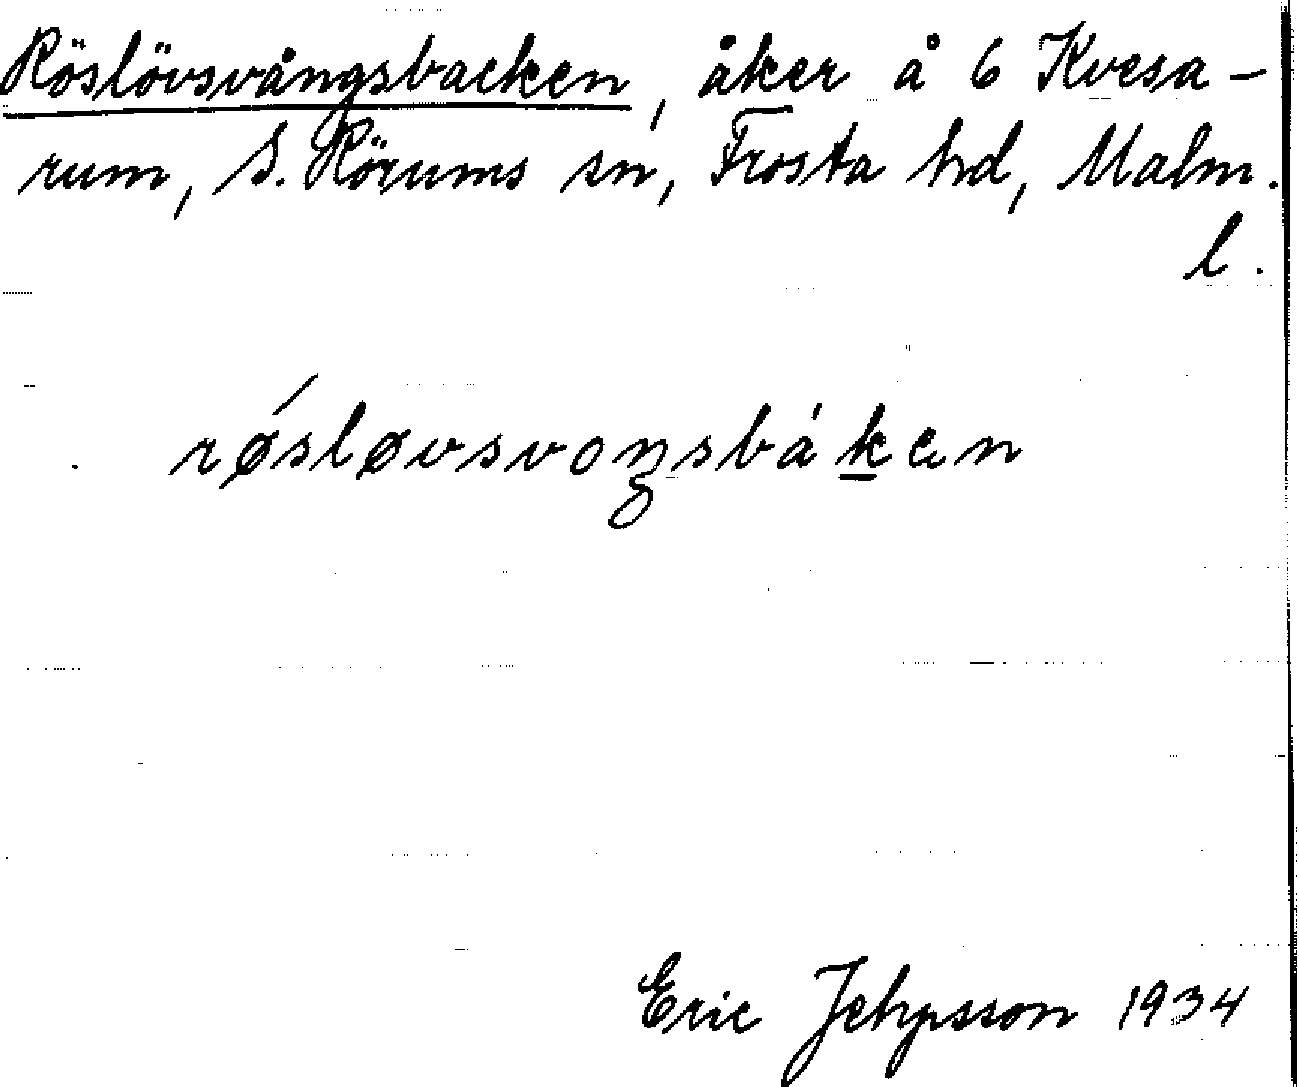 Röslövsvångsbacken, åker å 6 Kvesa-
rum, S. Rörums sn, Frosta hd, Malm.
l.
rǿsløvsvoŋsbáken
Eric Jehpsson 1934